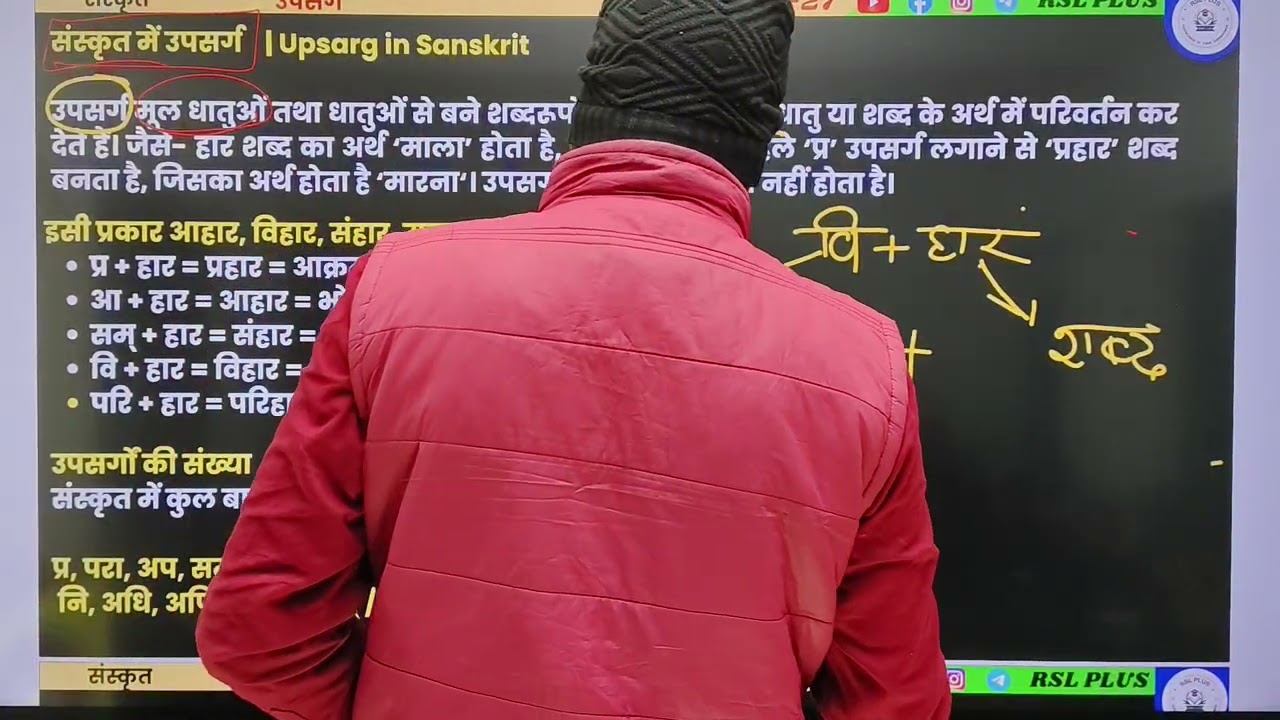 संस्कृत
उपसर्ग
-27
RSL PLUS
संस्कृत में उपसर्ग | Upsarg in Sanskrit
उपसर्ग मूल धातुओं तथा धातुओं से बने शब्दरूपों धातु या शब्द के अर्थ में परिवर्तन कर
देते हैं। जैसे- हार शब्द का अर्थ ‘माला’ होता है, ‘प्र’ उपसर्ग लगाने से ‘प्रहार’ शब्द
बनता है, जिसका अर्थ होता है ‘मारना‘। नहीं होता है।
इसी प्रकार आहार, विहार, संहार,
• प्र + हार = प्रहार =
• आ + हार = आहार =
• सम् + हार = संहार =
• वि + हार = विहार =
• परि + हार =
वि + हार
+ शब्द
उपसर्गों की संख्या
संस्कृत में कुल
प्र, परा, अप,
नि, अधि,
संस्कृत
RSL PLUS